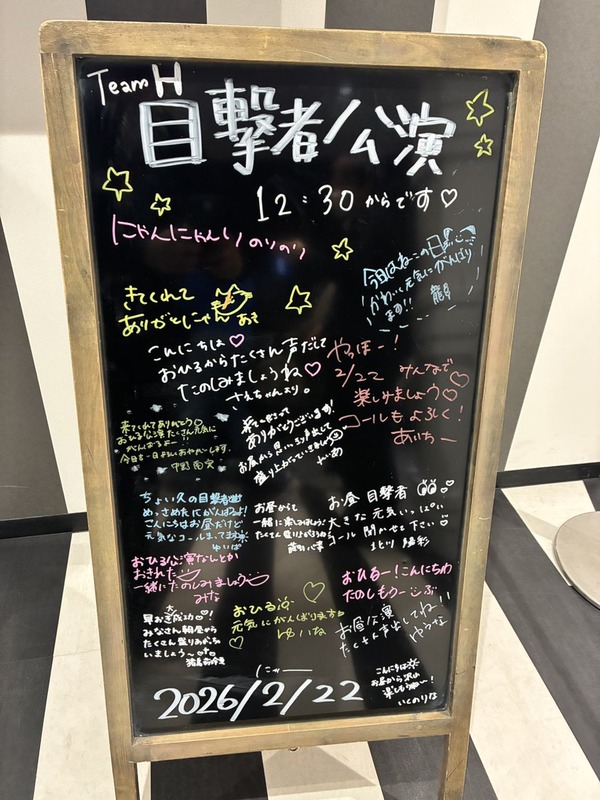 Team H
目撃者公演
12:30からです♡
にゃんにゃんりのりの
今日はねこの日
かわいく元気にがんばり
ます!!
きてくれて
ありがとにゃん あき
こんにちは♡
おひるからたくさん声だして
たのしみましょうね♡
さえちゃんより。
やっほー!
2/22 みんなで
楽しみましょう♡
コールもよろしく!
あいちー
来てくれてありがとう
おひる公演たくさん元気に
がんばるよー!!
今日も一日よいおやべーします。
来てくださって
ありがとうございます!
お昼から思いっきり声出して
盛り上がっていきましょう
ちょい久の目撃者
めっさめたにがんばるよ!
こんにちはお昼だけど
元気なコールまってます
ゆいは
お昼からで
一緒に楽しみましょう!
お昼 目撃者
大きな元気いっぱい
コール 聞かせて下さい♡
北川 陽彩
おひる公演なんとか
おきれた
一緒にたのしみましょう
みな
おひるー!こんにちわ
たのしもうーぶ
早おき成功♡!
みなさん朝昼から
たくさん盛りあがっちゃ
いましょう〜
おひる
元気にがんばります
ゆいな
お昼公演
たくさん声出してね!!
ゆうな
にゃー
2026/2/22
こんにちは
お昼から沢山
楽しもうねー!
いくのりな